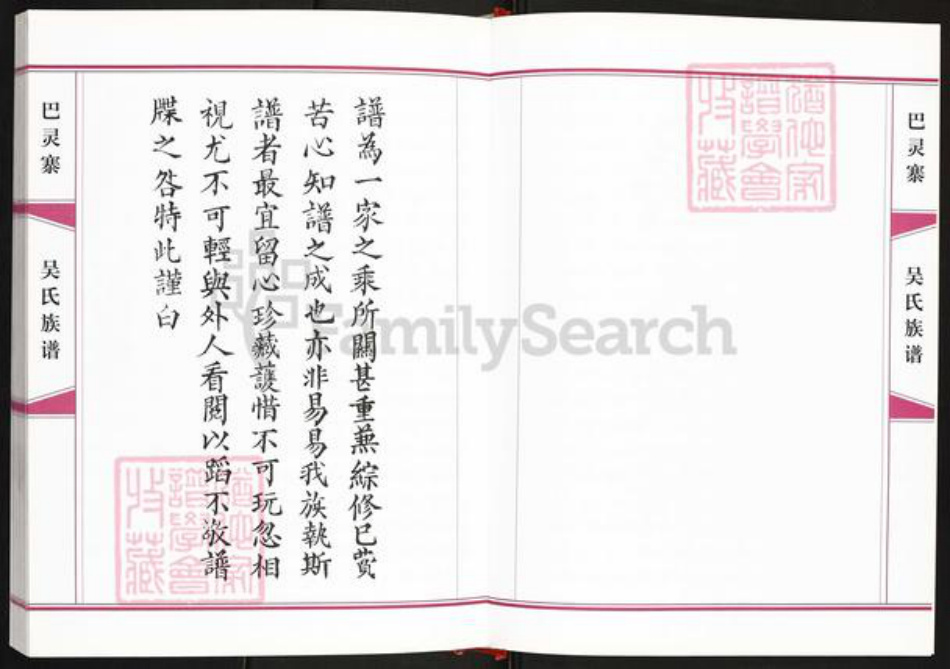 譜為一家之乘所關甚重蕪綜修已費
苦心知譜之成也亦非易易我族執斯
譜者最宜留心珍藏護惜不可玩忽相
視尤不可輕與外人看閱以蹈不敬譜
牒之咎特此謹白
巴灵寨
吴氏族谱
巴灵寨
吴氏族谱
FamilySearch
猶他家
譜學會
收藏
猶他家
譜學會
收藏